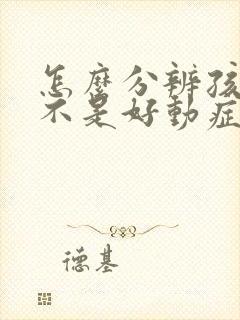 怎麼分辨孩
不是好動症
德基